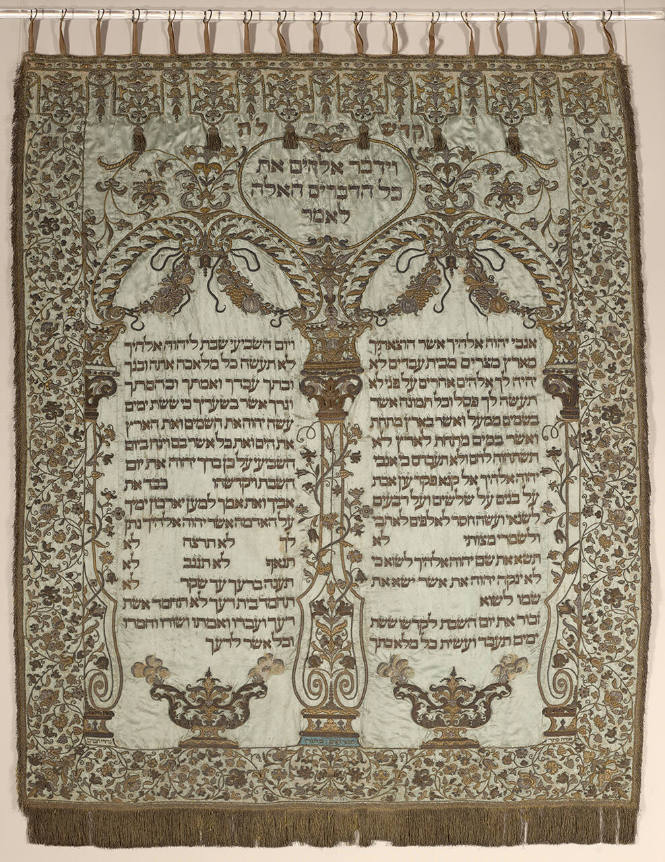 קדש לה
וידבר אלהים את
כל הדברים האלה
לאמר
אנכי יהוה אלהיך אשר הוצאתיך
מארץ מצרים מבית עבדים לא
יהיה לך אלהים אחרים על פני לא
תעשה לך פסל וכל תמונה אשר
בשמים ממעל ואשר בארץ מתחת
ואשר במים מתחת לארץ לא
תשתחוה להם ולא תעבדם כי אנכי
יהוה אלהיך אל קנא פקד עון אבת
על בנים על שלשים ועל רבעים
לשנאי ועשה חסד לאלפים לאהבי
ולשמרי מצותי לא
תשא את שם יהוה אלהיך לשוא כי
לא ינקה יהוה את אשר ישא את
שמו לשוא
זכור את יום השבת לקדשו ששת
ימים תעבד ועשית כל מלאכתך
ויום השביעי שבת ליהוה אלהיך
לא תעשה כל מלאכה אתה ובנך
ובתך עבדך ואמתך ובהמתך
וגרך אשר בשעריך כי ששת ימים
עשה יהוה את השמים ואת הארץ
את הים ואת כל אשר בם וינח ביום
השביעי על כן ברך יהוה את יום
השבת ויקדשהו כבד את
אביך ואת אמך למען יארכון ימיך
על האדמה אשר יהוה אלהיך נתן
לך לא תרצח לא
תנאף לא תגנב לא
תענה ברעך עד שקר לא
תחמד בית רעך לא תחמד אשת
רעך ועבדו ואמתו ושורו וחמרו
וכל אשר לרעך